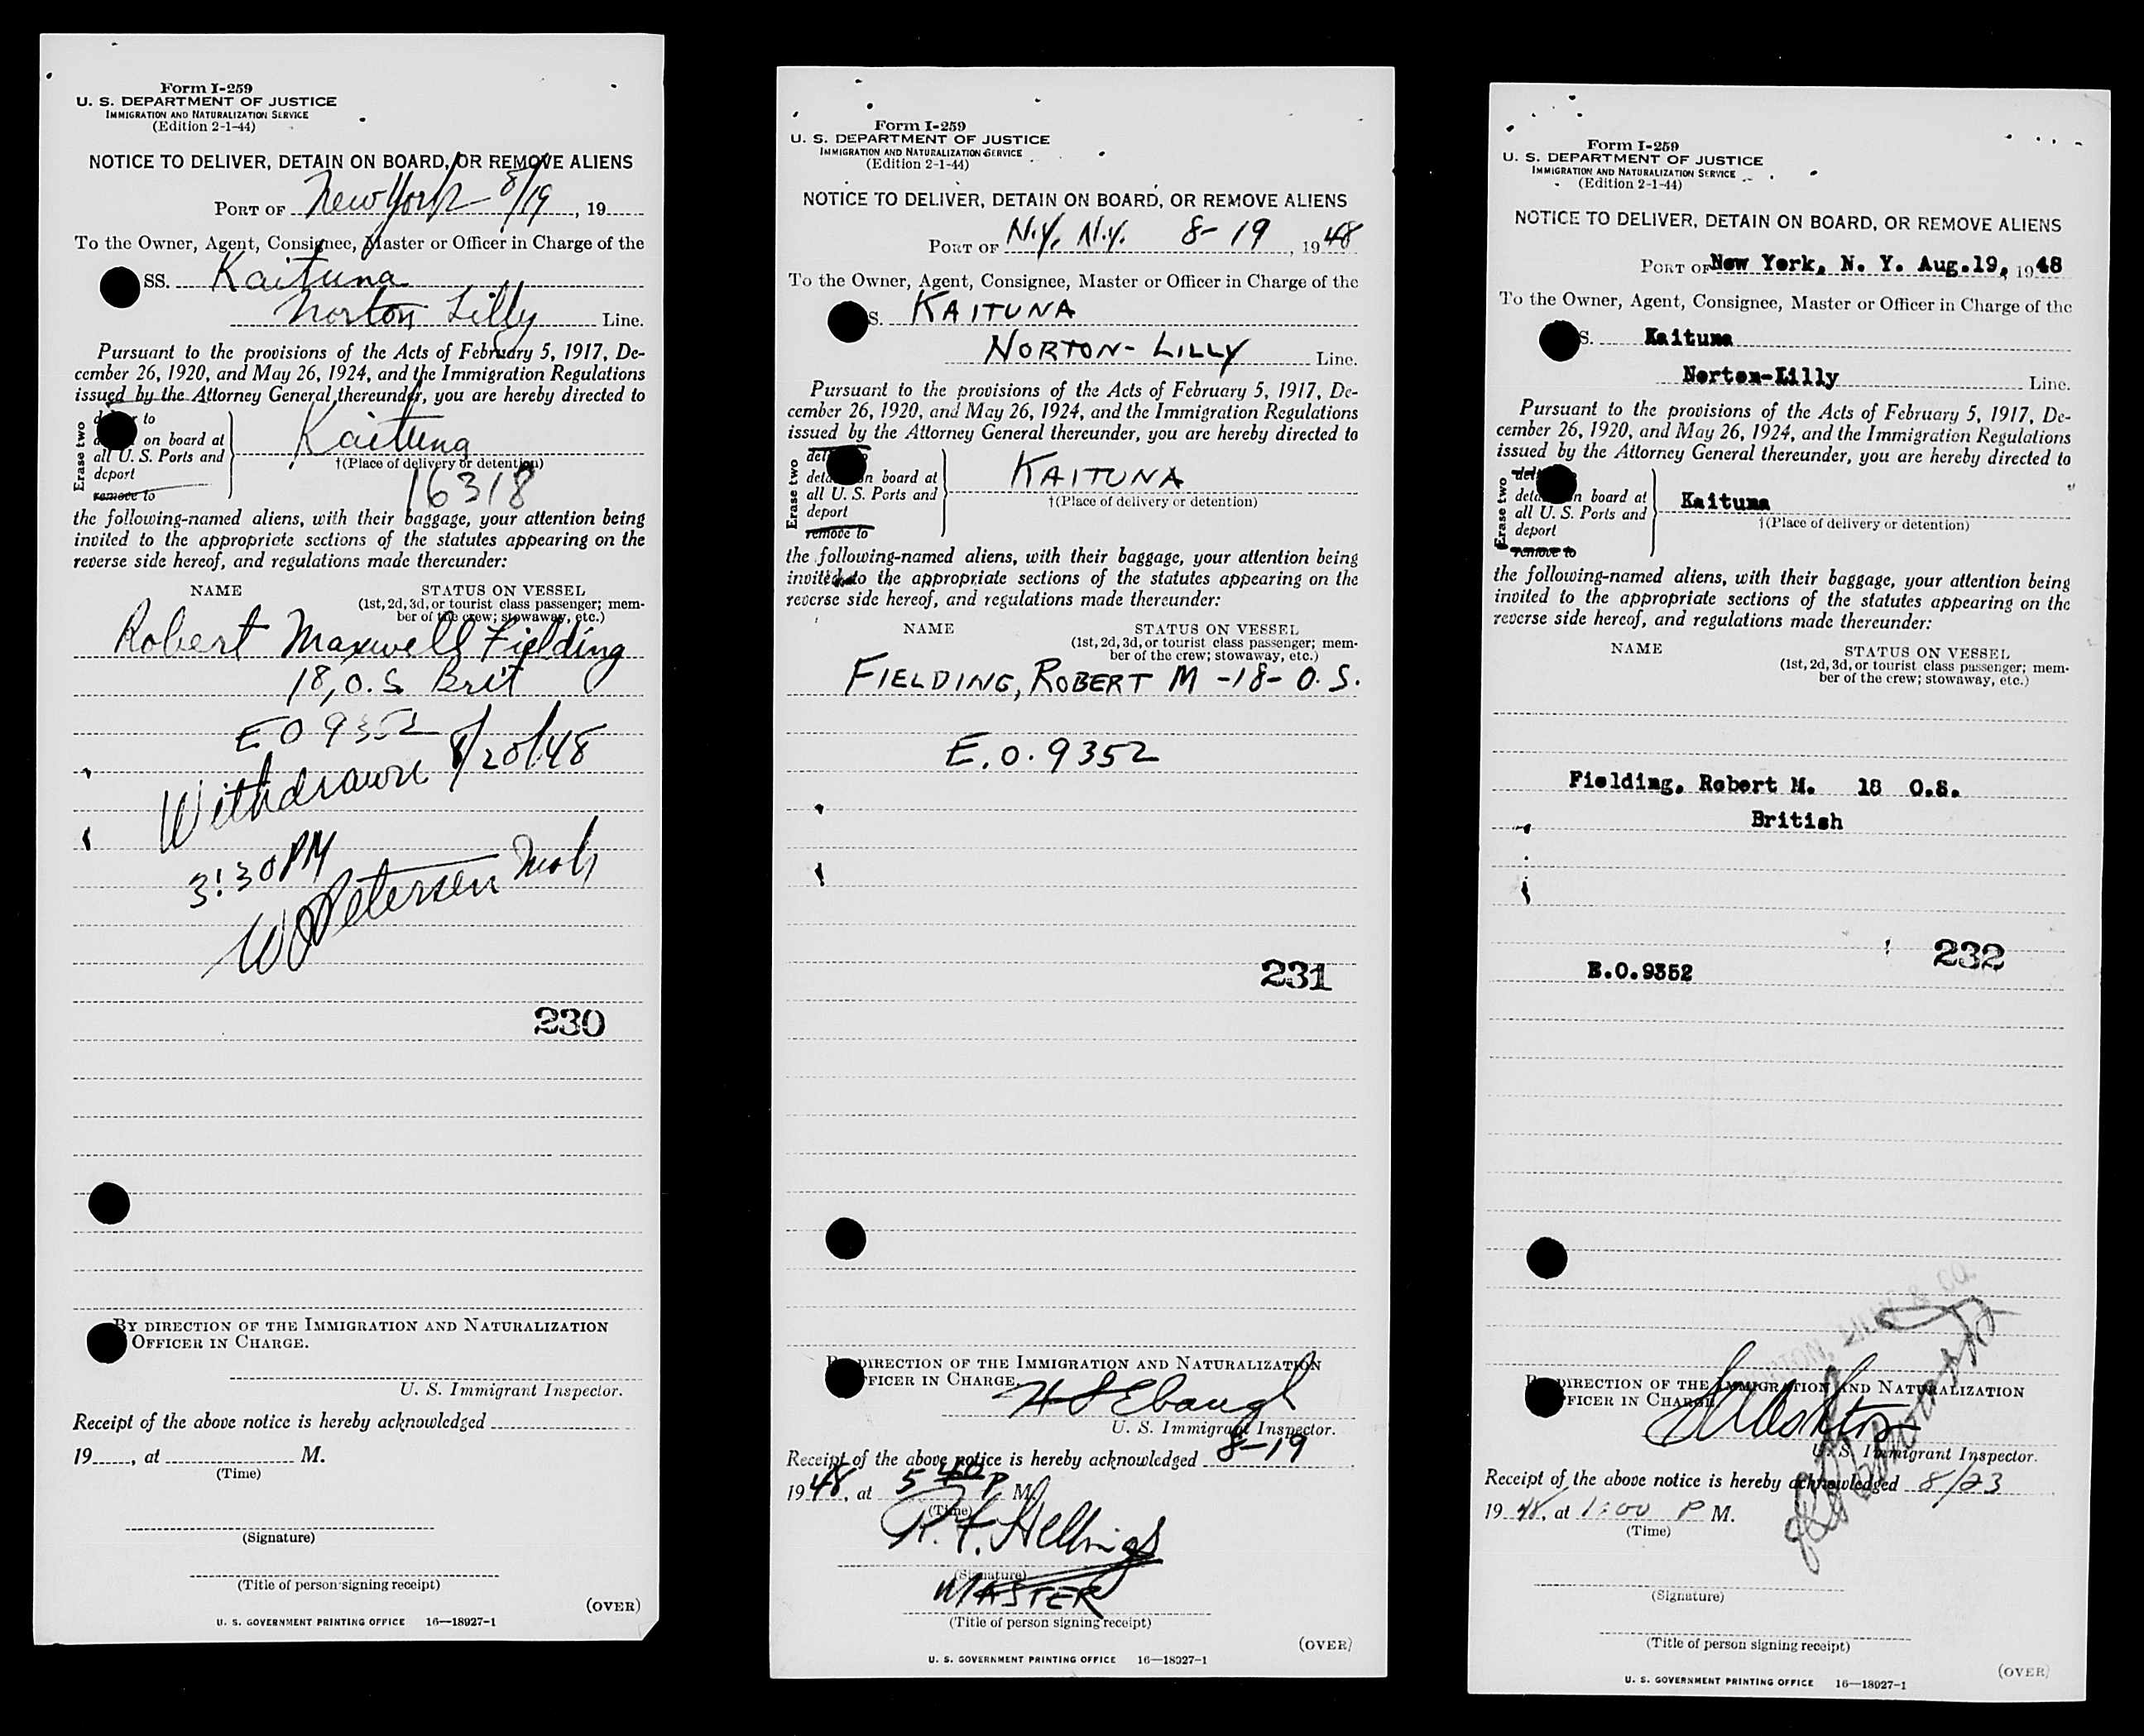 Form I-259
U. S. DEPARTMENT OF JUSTICE
IMMIGRATION AND NATURALIZATION SERVICE
(Edition 2-1-44)
NOTICE TO DELIVER, DETAIN ON BOARD, OR REMOVE ALIENS
PORT OF New York 8/19, 19
To the Owner, Agent, Consignee, Master or Officer in Charge of the
SS. Kaituna
Norton Lilly Line.
Pursuant to the provisions of the Acts of February 5, 1917, De-
cember 26, 1920, and May 26, 1924, and the Immigration Regulations
issued by the Attorney General thereunder, you are hereby directed to
Erase two
to
on board at
all U. S. Ports and
deport
remove to
Kaituna
†(Place of delivery or detention)
16318
the following-named aliens, with their baggage, your attention being
invited to the appropriate sections of the statutes appearing on the
reverse side hereof, and regulations made thereunder:
NAME STATUS ON VESSEL
(1st, 2d, 3d, or tourist class passenger; mem-
ber of the crew; stowaway, etc.)
Robert Maxwell Fielding
18, O.S. Brit
E O 9352
Withdrawn 8/20/48
3:30 PM
W Petersen
230
BY DIRECTION OF THE IMMIGRATION AND NATURALIZATION
OFFICER IN CHARGE.
U. S. Immigrant Inspector.
Receipt of the above notice is hereby acknowledged
19, at M.
(Time)
(Signature)
(Title of person signing receipt)
(OVER)
U. S. GOVERNMENT PRINTING OFFICE 16—18927-1
Form I-259
U. S. DEPARTMENT OF JUSTICE
IMMIGRATION AND NATURALIZATION SERVICE
(Edition 2-1-44)
NOTICE TO DELIVER, DETAIN ON BOARD, OR REMOVE ALIENS
PORT OF N.Y. N.Y. 8-19, 1948
To the Owner, Agent, Consignee, Master or Officer in Charge of the
S. KAITUNA
NORTON-LILLY Line.
Pursuant to the provisions of the Acts of February 5, 1917, De-
cember 26, 1920, and May 26, 1924, and the Immigration Regulations
issued by the Attorney General thereunder, you are hereby directed to
Erase two
on board at
all U. S. Ports and
deport
remove to
KAITUNA
†(Place of delivery or detention)
the following-named aliens, with their baggage, your attention being
invited to the appropriate sections of the statutes appearing on the
reverse side hereof, and regulations made thereunder:
NAME STATUS ON VESSEL
(1st, 2d, 3d, or tourist class passenger; mem-
ber of the crew; stowaway, etc.)
FIELDING, ROBERT M -18- O.S.
E.O. 9352
231
DIRECTION OF THE IMMIGRATION AND NATURALIZATION
FICER IN CHARGE.
H S Ebaugh
U. S. Immigrant Inspector.
Receipt of the above notice is hereby acknowledged 8-19
1948, at 5 40 P M.
(Time)
(Signature)
MASTER
(Title of person signing receipt)
(OVER)
U. S. GOVERNMENT PRINTING OFFICE 16—18927-1
Form I-259
U. S. DEPARTMENT OF JUSTICE
IMMIGRATION AND NATURALIZATION SERVICE
(Edition 2-1-44)
NOTICE TO DELIVER, DETAIN ON BOARD, OR REMOVE ALIENS
PORT OF New York, N. Y. Aug.19, 1948
To the Owner, Agent, Consignee, Master or Officer in Charge of the
S. Kaituna
Norton-Lilly Line.
Pursuant to the provisions of the Acts of February 5, 1917, De-
cember 26, 1920, and May 26, 1924, and the Immigration Regulations
issued by the Attorney General thereunder, you are hereby directed to
Erase two
on board at
all U. S. Ports and
deport
remove to
Kaituna
†(Place of delivery or detention)
the following-named aliens, with their baggage, your attention being
invited to the appropriate sections of the statutes appearing on the
reverse side hereof, and regulations made thereunder:
NAME STATUS ON VESSEL
(1st, 2d, 3d, or tourist class passenger; mem-
ber of the crew; stowaway, etc.)
Fielding, Robert M. 18 O.S.
British
232
E.O.9352
NORTON, LILLY & CO.
DIRECTION OF THE IMMIGRATION AND NATURALIZATION
FICER IN CHARGE.
U. S. Immigrant Inspector.
Receipt of the above notice is hereby acknowledged 8/23
1948, at 1:00 P M.
(Time)
(Signature)
(Title of person signing receipt)
(OVER)
U. S. GOVERNMENT PRINTING OFFICE 16—18927-1